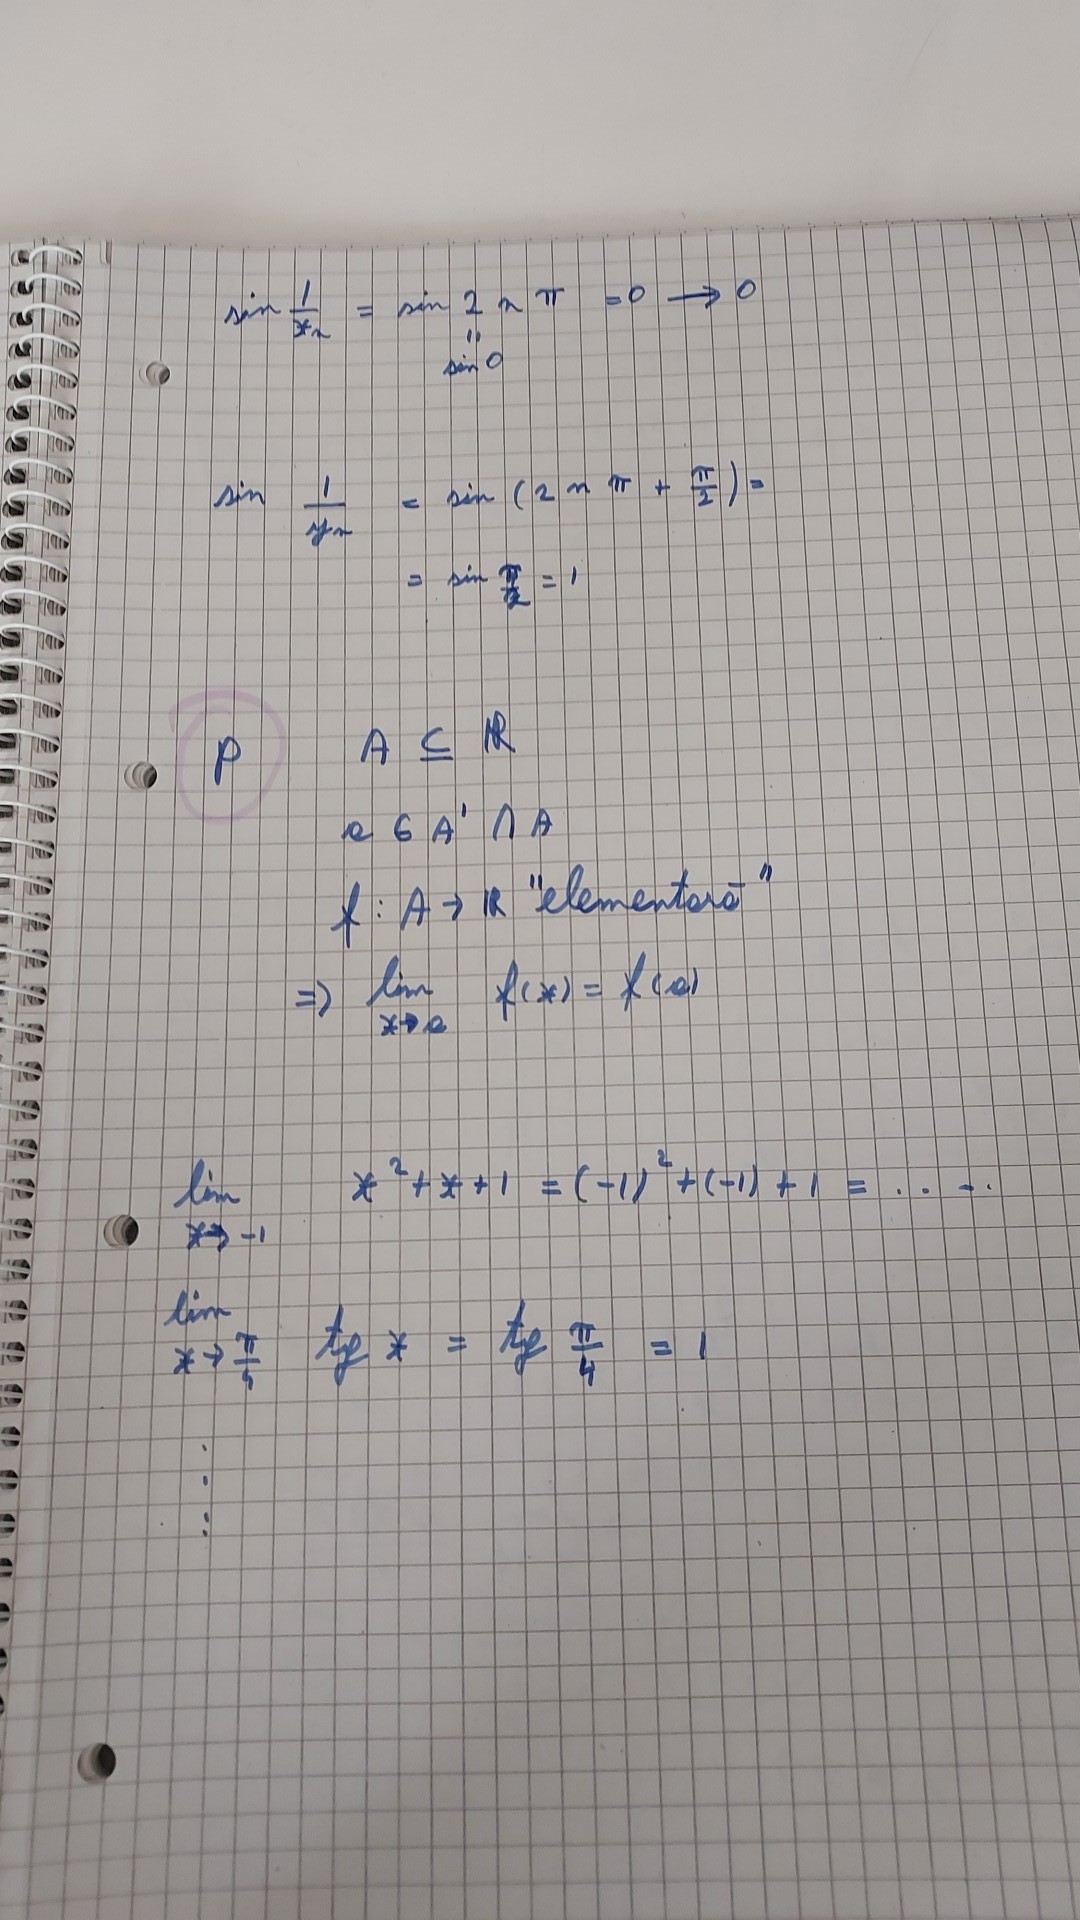 sin 1/xₙ = sin 2 n π = 0 → 0
"
sin 0
sin 1/yₙ = sin (2 n π + π/2) =
= sin π/2 = 1
P A ⊆ ℝ
a ∈ A' ∩ A
f : A → ℝ "elementară"
=> lim x→a f(x) = f(a)
lim x→-1 x² + x + 1 = (-1)² + (-1) + 1 = . . . .
lim x→π/4 tg x = tg π/4 = 1
⋮